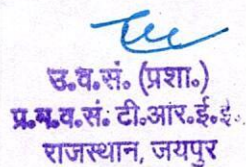 उ.व.सं. (प्रशा.)
प्र.मु.व.सं. टी.आर.ई.ई.
राजस्थान, जयपुर